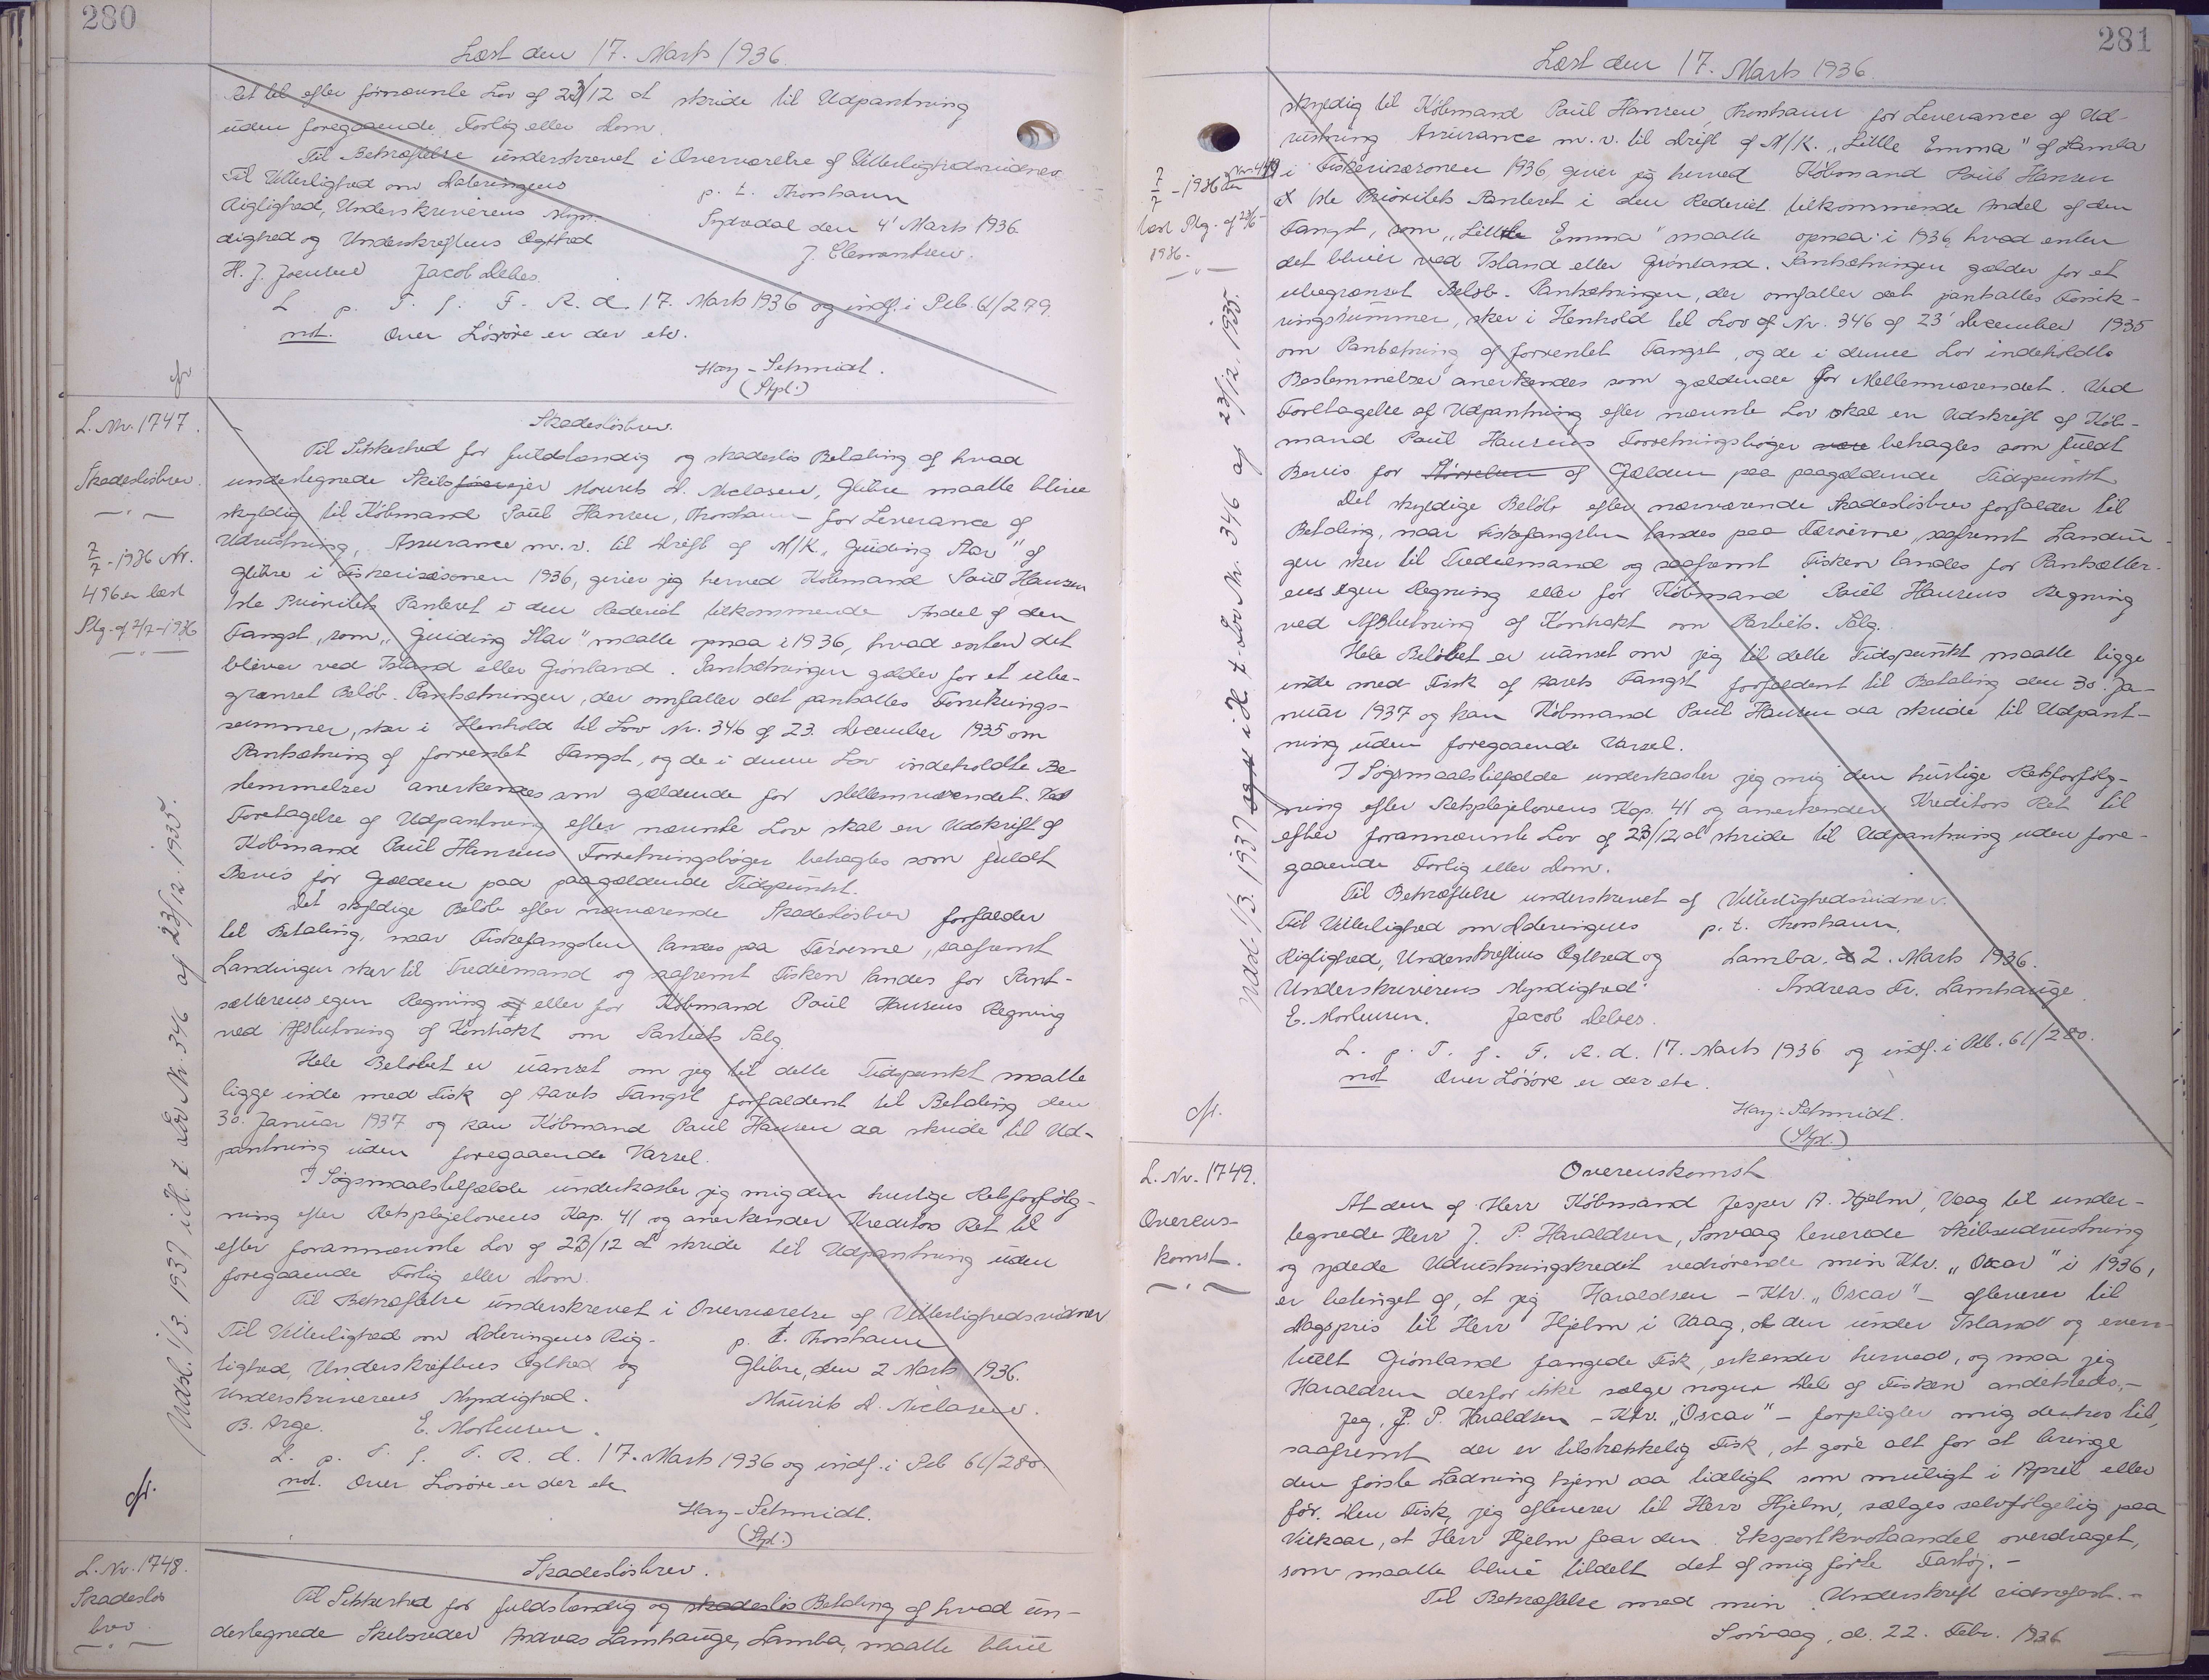 280
Læst den 17. Marts 1936.
Ret til efter fornævnte Lov af 23/12 at skride til Udpantning
uden foregaaende Forlig eller Dom.
Til Bekræftelse underskrevet i Overværelse af Vitterlighedsvidner
Til Vitterlighed om Dateringens
Rigtighed, Underskriverens Myn-
dighed og Underskriftens Ægthed
H. J. Joensen Jacob Debes.
p. t. Thorshavn
Sydredal den 4' Marts 1936
J. Clementsen.
L. p. T. f. F. R. d. 17. Marts 1936 og indf. i Ptb. 61/279.
not. Over Løsøre er der etc.
Hay-Schmidt.
(Stpl.)
cfr
L. Nr. 1747.
Skadesløsbrev.
7/7 - 1936 Nr.
496 er læst
Ptg. af 7/7-1936
Skadesløsbrev.
Til Sikkerhed for fuldstændig og skadesløs Betaling af hvad
undertegnede Skibsfører ejer Mourits D. Niclasen, Glibre maatte blive
skyldig til Købmand Poul Hansen, Thorshavn for Leverance af
Udrustning, Assurance m.v. til Drift af M/K. "Guiding Star" af
Glibre i Fiskerisæsonen 1936, giver jeg herved Købmand Poul Hansen
1ste Prioritets Panteret i den Rederiet tilkommende Andel af den
Fangst, som "Guiding Star" maatte opnaa i 1936, hvad enten det
bliver ved Island eller Grønland. Pantsætningen gælder for et ube-
grænset Beløb. Pantsætningen, der omfatter det pantsattes Forsikrings-
summer, sker i Henhold til Lov Nr. 346 af 23. December 1935 om
Pantsætning af forventet Fangst, og de i denne Lov indeholdte Be-
stemmelser anerkendes som gældende for Mellemværendet. Ved
Foretagelse af Udpantning efter nævnte Lov skal en Udskrift af
Købmand Poul Hansens Forretningsbøger betragtes som fuldt
Bevis for Gælden paa paagældende Tidspunkt.
Det skyldige Beløb efter nærværende Skadesløsbrev forfalder
til Betaling, naar Fiskefangsten landes paa Færøerne, saafremt
Landingen sker til Trediemand og saafremt Fisken landes for Pant-
sætterens egen Regning og eller for Købmand Poul Hansens Regning
ved Afslutning af Kontrakt om Partiets Salg.
Hele Beløbet er uanset om jeg til dette Tidspunkt maatte
ligge inde med Fisk af Aarets Fangst forfaldent til Betaling den
30. Januar 1937 og kan Købmand Poul Hansen da skride til Ud-
pantning uden foregaaende Varsel.
I Søgsmaalstilfælde underkaster jeg mig den hurtige Retsforfølg-
ning efter Retsplejelovens Kap. 41 og anerkender Kreditors Ret til
efter forannævnte Lov af 23/12 at skride til Udpantning uden
foregaaende Forlig eller Dom.
Til Bekræftelse underskrevet i Overværelse af Vitterlighedsvidner
Til Vitterlighed om Dateringens Rig-
tighed, Underskriftens Ægthed og
Underskriverens Myndighed.
B. Arge. E. Mortensen.
p. t. Thorshavn
Glibre, den 2 Marts 1936.
Mourits D. Niclasen.
L. p. T. f. F. R. d. 17. Marts 1936 og indf. i Ptb 61/280.
not. Over Løsøre er der etc
Hay-Schmidt.
(Stpl.)
cfr.
Udsl. 1/3. 1937 i H. t. Lov Nr. 346 af 23/12. 1935.
L. Nr. 1748.
Skadesløs
brev
Skadesløsbrev.
Til Sikkerhed for fuldstændig og skadesløs Betaling af hvad un-
dertegnede Skibsreder Andreas Lamhauge, Lamba, maatte blive
281
Læst den 17. Marts 1936.
skyldig til Købmand Poul Hansen, Thorshavn for Leverance af Ud-
rustning Assurance m.v. til Drift af M/K. "Little Emma" af Lamba
i Fiskerisæsonen 1936, giver jeg herved Købmand Poul Hansen
1ste Prioritets Panteret i den Rederiet tilkommende Andel af den
Fangst, som "Little Emma" maatte opnaa i 1936, hvad enten
det bliver ved Island eller Grønland. Pantsætningen gælder for et
ubegrænset Beløb. Pantsætningen, der omfatter det pantsattes Forsik-
ringssummer, sker i Henhold til Lov af Nr. 346 af 23' December 1935
om Pantsætning af forventet Fangst, og de i denne Lov indeholdte
Bestemmelser anerkendes som gældende for Mellemværendet. Ved
Foretagelse af Udpantning efter nævnte Lov skal en Udskrift af Køb-
mand Poul Hansens Forretningsbøger være betragtes som fuldt
Bevis for Størrelsen af Gælden paa paagældende Tidspunkt
Det skyldige Beløb efter nærværende Skadesløsbrev forfalder til
Betaling, naar Fiskefangsten landes paa Færøerne, saafremt Landin-
gen sker til Trediemand og saafremt Fisken landes for Pantsætter-
ens egen Regning eller for Købmand Poul Hansens Regning
ved Afslutning af Kontrakt om Partiets Salg.
Hele Beløbet er uanset om jeg til dette Tidspunkt maatte ligge
inde med Fisk af Aarets Fangst forfaldent til Betaling den 30. Ja-
nuar 1937 og kan Købmand Poul Hansen da skride til Udpant-
ning uden foregaaende Varsel.
I Søgsmaalstilfælde underkaster jeg mig den hurtige Retsforfølg-
ning efter Retsplejelovens Kap. 41 og anerkender Kreditors Ret til
efter forannævnte Lov af 23/12 at skride til Udpantning uden fore-
gaaende Forlig eller Dom.
Til Bekræftelse underskrevet af Vitterlighedsvidner.
Til Vitterlighed om Dateringens
Rigtighed, Underskriftens Ægthed og
Underskriverens Myndighed
E. Mortensen. Jacob Debes.
p. t. Thorshavn,
Lamba, d 2. Marts 1936.
Andreas Fr. Lamhauge
L. p. T. f. F. R. d. 17. Marts 1936 og indf. i Ptb. 61/280.
not Over Løsøre er der etc.
Hay-Schmidt.
(Stpl.)
cfr.
7/7 - 1936 er Nr. 449
læst Ptg. af 28/6-
1936.-
Udsl 1/3. 1937 og i H. t. Lov Nr. 346 af 23/12. 1935.
L. Nr. 1749.
Overens-
komst.
Overenskomst
At den af Herr Købmand Jesper A. Hjelm, Vaag til under-
tegnede Herr J. P. Haraldsen, Sørvaag leverede Skibsudrustning
og ydede Udrustningskredit vedrørende min Ktr. "Oscar" i 1936,
er betinget af, at jeg Haraldsen - Ktr. "Oscar" - afleverer til
Dagspris til Herr Hjelm i Vaag, al den under Island og even-
tuelt Grønland fangede Fisk, erkender herved, og maa jeg
Haraldsen derfor ikke sælge nogen Del af Fisken andetsteds.-
Jeg, J. P. Haraldsen - Ktr. "Oscar" - forpligter mig desuden til,
saafremt der er tilstrækkelig Fisk, at gøre alt for at bringe
den første Ladning hjem saa tidligt som muligt i April eller
før. Den Fisk, jeg afleverer til Herr Hjelm, sælges selvfølgelig paa
Vilkaar, at Herr Hjelm faar den Eksportkvotaandel overdraget,
som maatte blive tildelt det af mig førte Fartøj.-
Til Bekræftelse med min Underskrift vidnefast.-
Sørvaag, d. 22. Febr. 1936